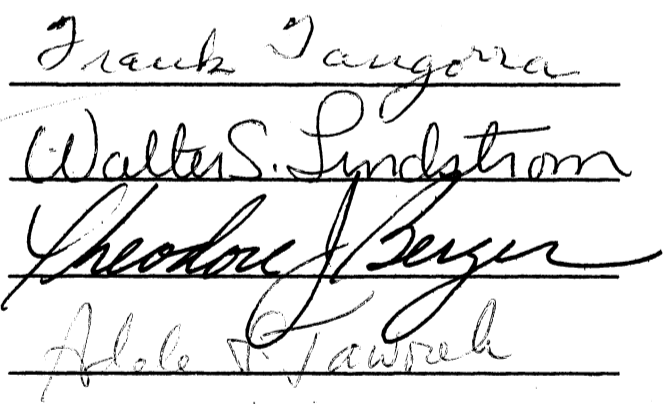 Frank Tangorra
Walter S. Lindstrom
Theodore J Berger
Adele